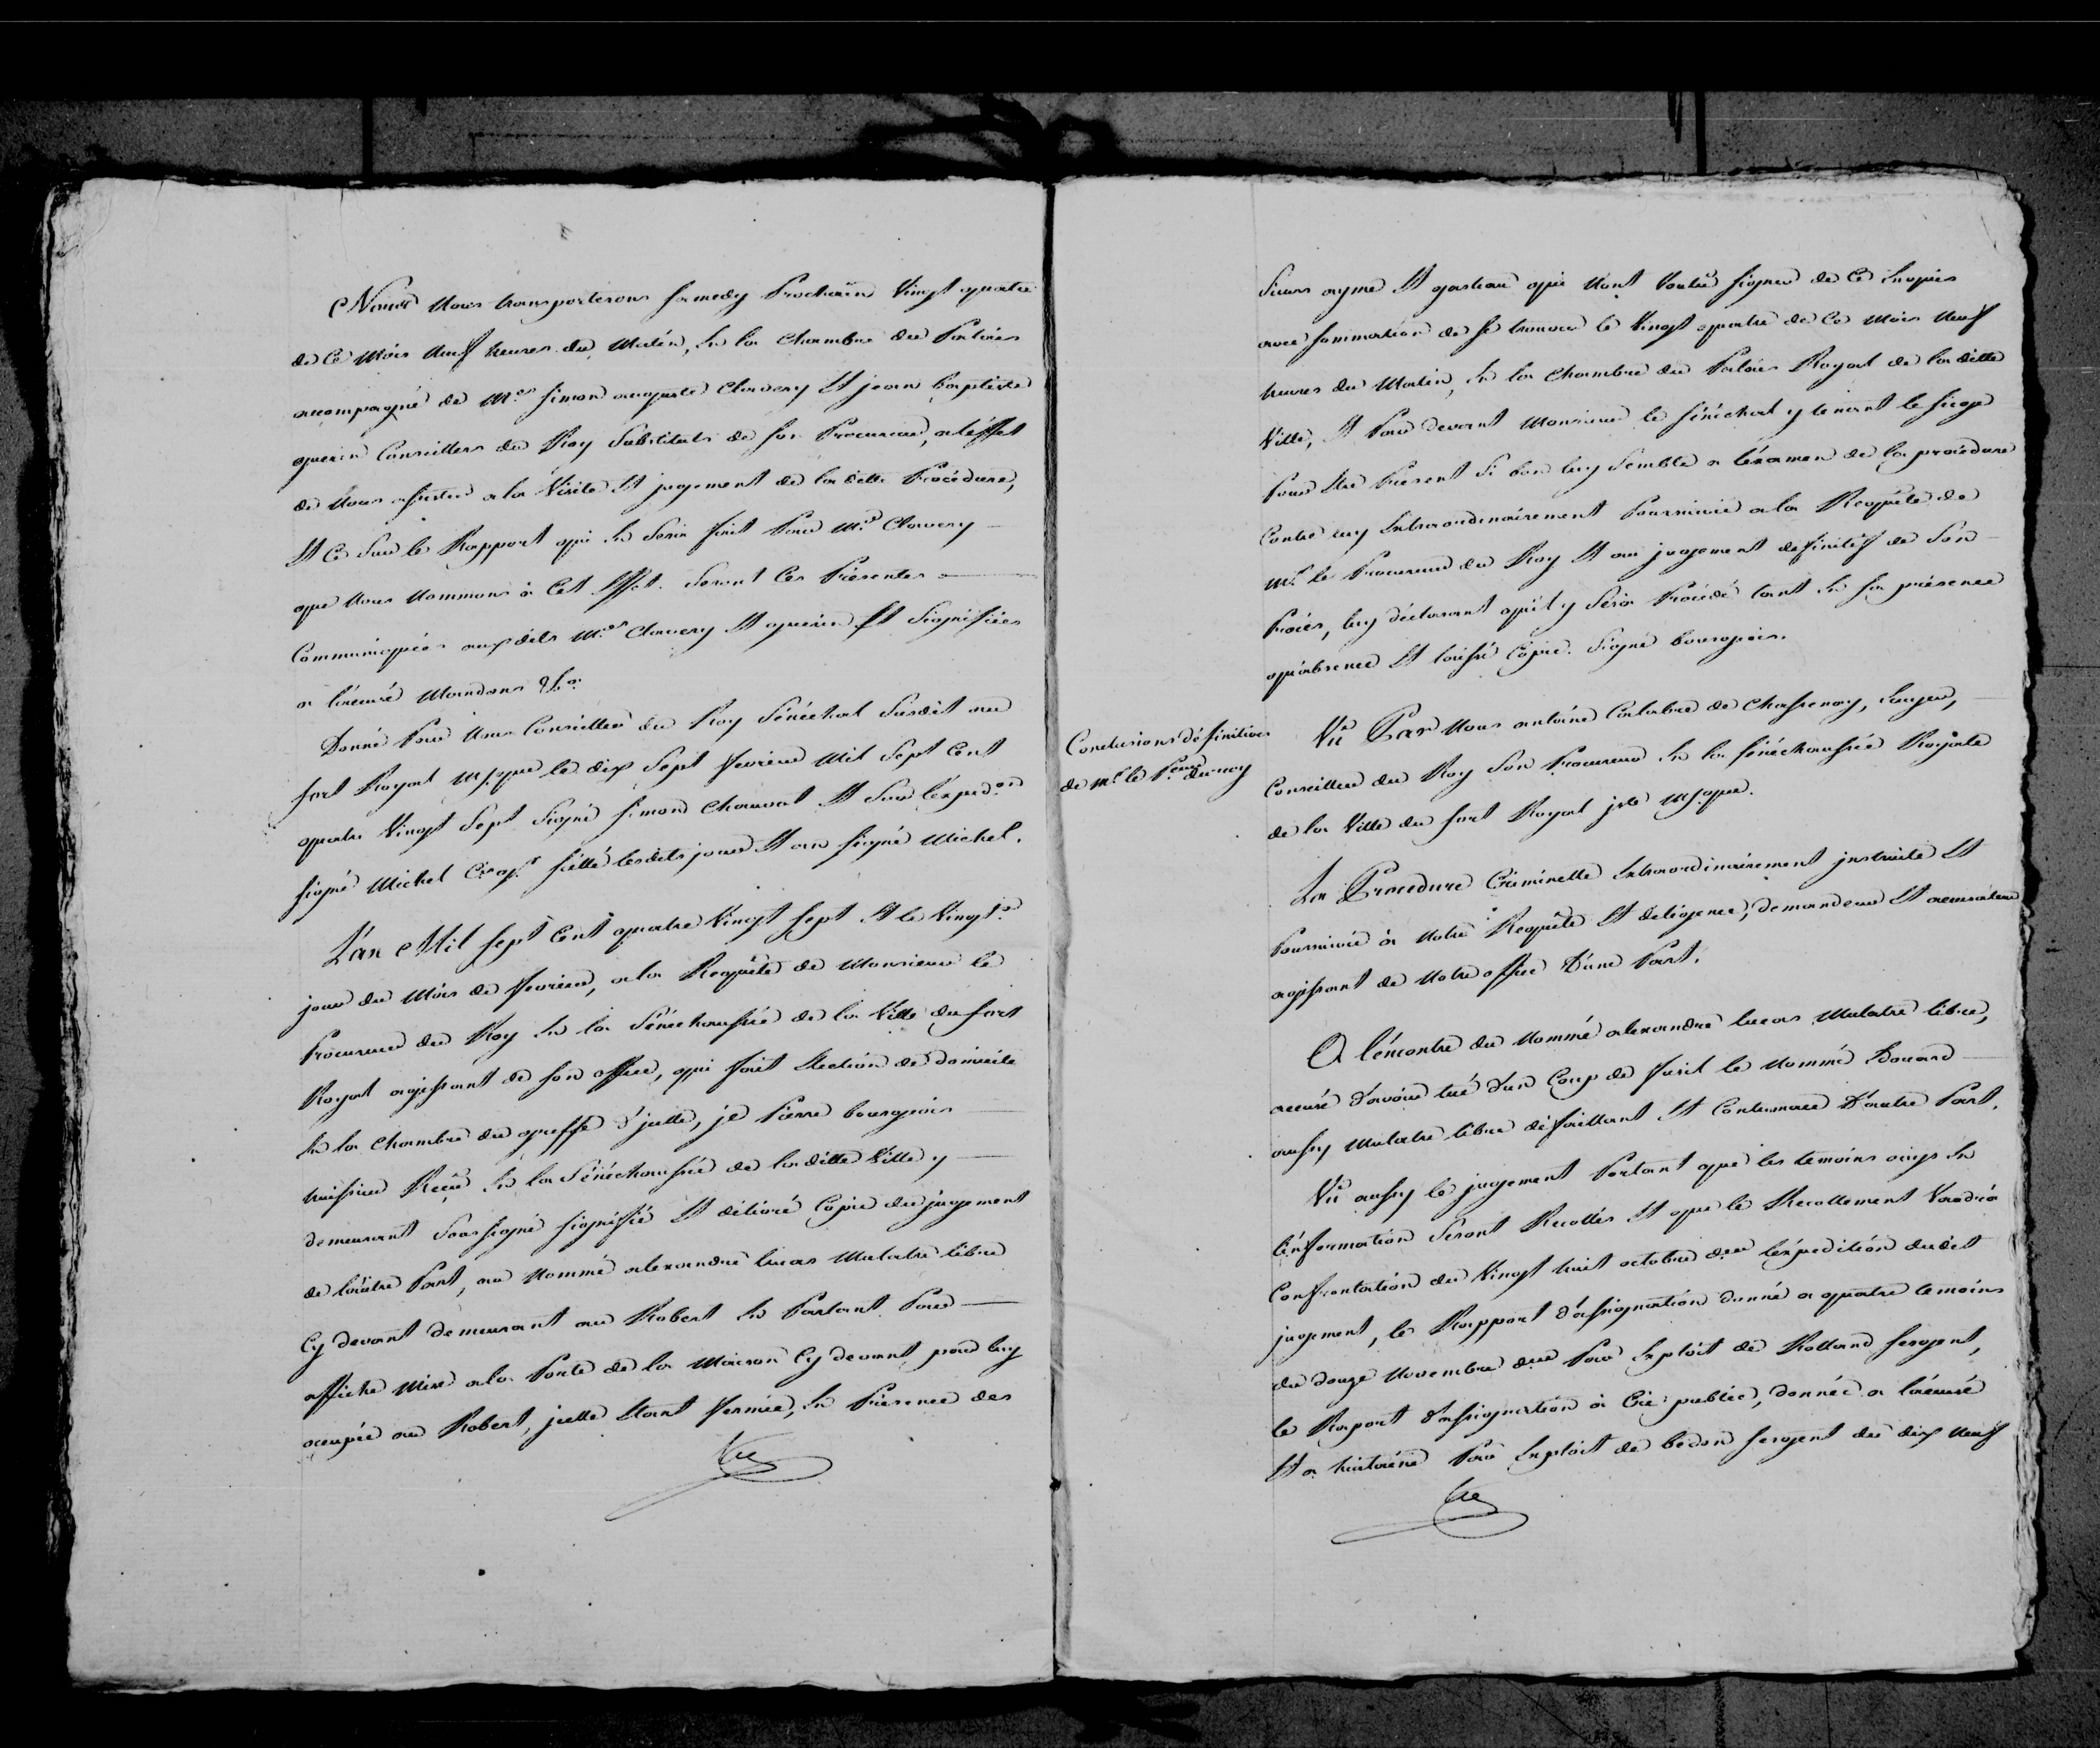 Nous nous transporterons samedy Prochain Vingt quatre
de Ce Mois neuf heures du Matin, En la Chambre du Palais
accompagné de Mes. simon auguste Clavery Et jean baptiste
querin Conseillers du Roy Substituts de son Procureur, a léffet
de Nous assister a la Visite Et jugement de la ditte Procédure,
Et Ce Sur le Rapport qui En Sera fait Par Me. Clavery
que Nous Nommons à Cet Effet. Seront Ces Présentes
Communiquées auxdits Mes. Clavery Et querin Et Signifiées
a l'acusé Mandons &a.
Donné Par Nous Conseiller du Roy Sénéchal Susdit au
fort Royal Mque le dix Sept fevrier Mil Sept Cent
quatre Vingt Sept Signé simon Chauvot Et Sur l'expedon
signé Michel Scellé lesdits jour Et an signé Michel.
L'an Mil sept Cent quatre Vingt sept Et le Vingte
jour du Mois de fevrier, a la Requête de Monsieur le
Procureur du Roy En la Sénéchaussée de la Ville du fort
Royal agissant de son office, qui fait Election de domicile
En la Chambre du greffe d'jcelle, je Pierre bourgeois
huissier Reçu En la Sénéchaussée de la ditte Ville y
demeurant Soussigné signiffié Et délivré Copie du jugement
de l'autre Part, au Nommé alexandre lucas Mulatre libre
Cy devant demeurant au Robert En Parlant Par
affiche Mise a la Porte de la Maison Cy devant par luy
occupée au Robert, jcelle Etant fermée, En Présence des
Sieurs ayme Et gasteau qui Nont Voulu signer de Ce Enquis
avec sommation de se trouver le Vingt quatre de Ce Mois Neuf
heures du Matin, En la Chambre du Palais Royal de la ditte
Ville, Et Par devant Monsieur le sénéchal y tenant le siege
Pour Etre Présent Si bon luy Semble a lexamen de la procédure
Contre luy Extraordinairement Poursuivie a la Requête de
Mr. le Procureur du Roy Et au jugement definitif de Son
Procés, luy déclarant qu'il y Séra Procédé tant En sa présence
qu'absence Et laissé Copie. Signé bourgeois.
Conclusions définitives
de Mr. le Peur. du roy
Vû Par Nous antoine Calabre de Chassenay, Ecuyer,
Conseiller du Roy Son Procureur En la sénéchaussée Royale
de la Ville du fort Royal jsle Mque.
La Procédure Criminelle Extraordinairement jnstruite Et
Poursuivie à Notre Requête Et diligence, demandeur Et accusateur
agissant de Notre office D'une Part.
A léncontre du Nommé alexandre lucas Mulatre libre,
accusé d'avoir tué d'un Coup de fusil le Nommé
aussy Mulatre libre défaillant Et Contumace D'autre Part.
Vû aussy le jugement Portant que les temoins ouys En
l'information Seront Recollés Et que le Recollement Vaudra
Confrontation du Vingt huit octobre der l'expedition dudit
jugement, le Rapport d'assignation donné a quatre temoins
du douze Novembre der Par Exploit de Rolland sergent,
le Raport d'assignation à Cri public, donnée a l'acusé
Et a huitaine Par Exploit de bedon sergent du dix Neuf